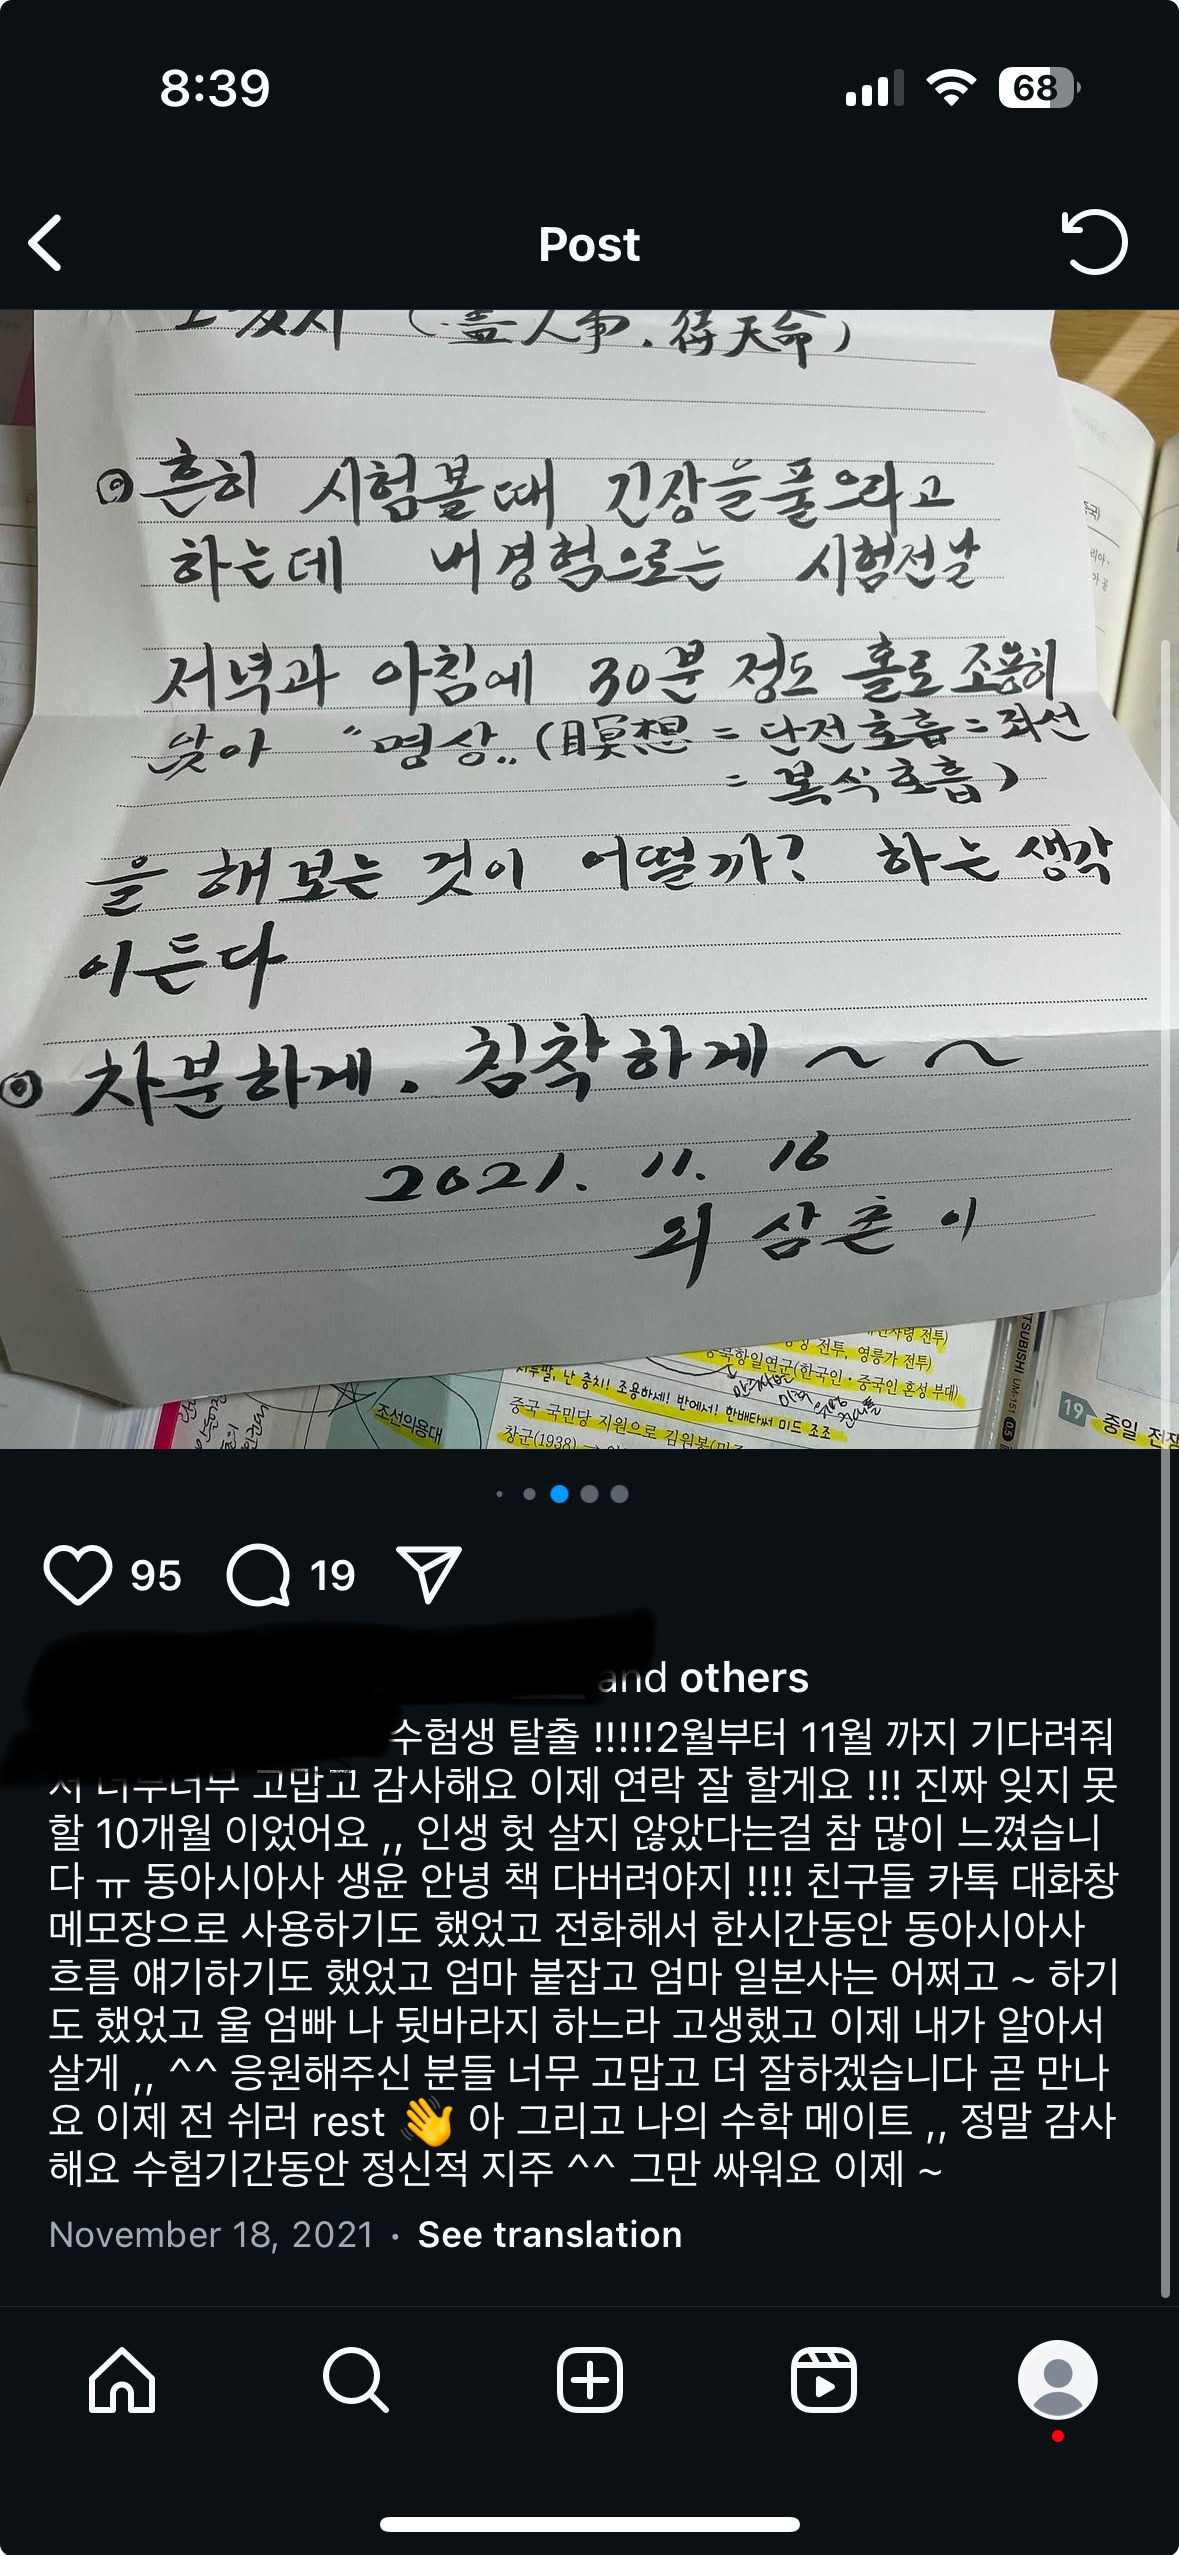 8:39
68
Post
(盡人事. 得天命)
흔히 시험볼때 긴장을풀으라고
하는데 내경험으로는 시험전날
저녁과 아침에 30분 정도 홀로 조용히
앉아 "명상" (瞑想 = 단전호흡 = 좌선
= 복식호흡)
을 해보는 것이 어떨까? 하는 생각
이든다
차분하게. 침착하게 ~ ~
2021. 11. 16
외삼촌이
전투)
전투, 영릉가 전투)
항일연군(한국인·중국인 혼성 부대)
난 중치! 조용하세! 반에서! 한배타써 미드 조조
조선의용대
중국 국민당 지원으로 김원봉
창군(1938)
TSUBISHI UM-151 0.5
19 중일 전쟁
95 19
and others
수험생 탈출 !!!!!2월부터 11월 까지 기다려줘
서 너무너무 고맙고 감사해요 이제 연락 잘 할게요 !!! 진짜 잊지 못
할 10개월 이었어요 ,, 인생 헛 살지 않았다는걸 참 많이 느꼈습니
다 ㅠ 동아시아사 생윤 안녕 책 다버려야지 !!!! 친구들 카톡 대화창
메모장으로 사용하기도 했었고 전화해서 한시간동안 동아시아사
흐름 얘기하기도 했었고 엄마 붙잡고 엄마 일본사는 어쩌고 ~ 하기
도 했었고 울 엄빠 나 뒷바라지 하느라 고생했고 이제 내가 알아서
살게 ,, ^^ 응원해주신 분들 너무 고맙고 더 잘하겠습니다 곧 만나
요 이제 전 쉬러 rest 👋 아 그리고 나의 수학 메이트 ,, 정말 감사
해요 수험기간동안 정신적 지주 ^^ 그만 싸워요 이제 ~
November 18, 2021 · See translation